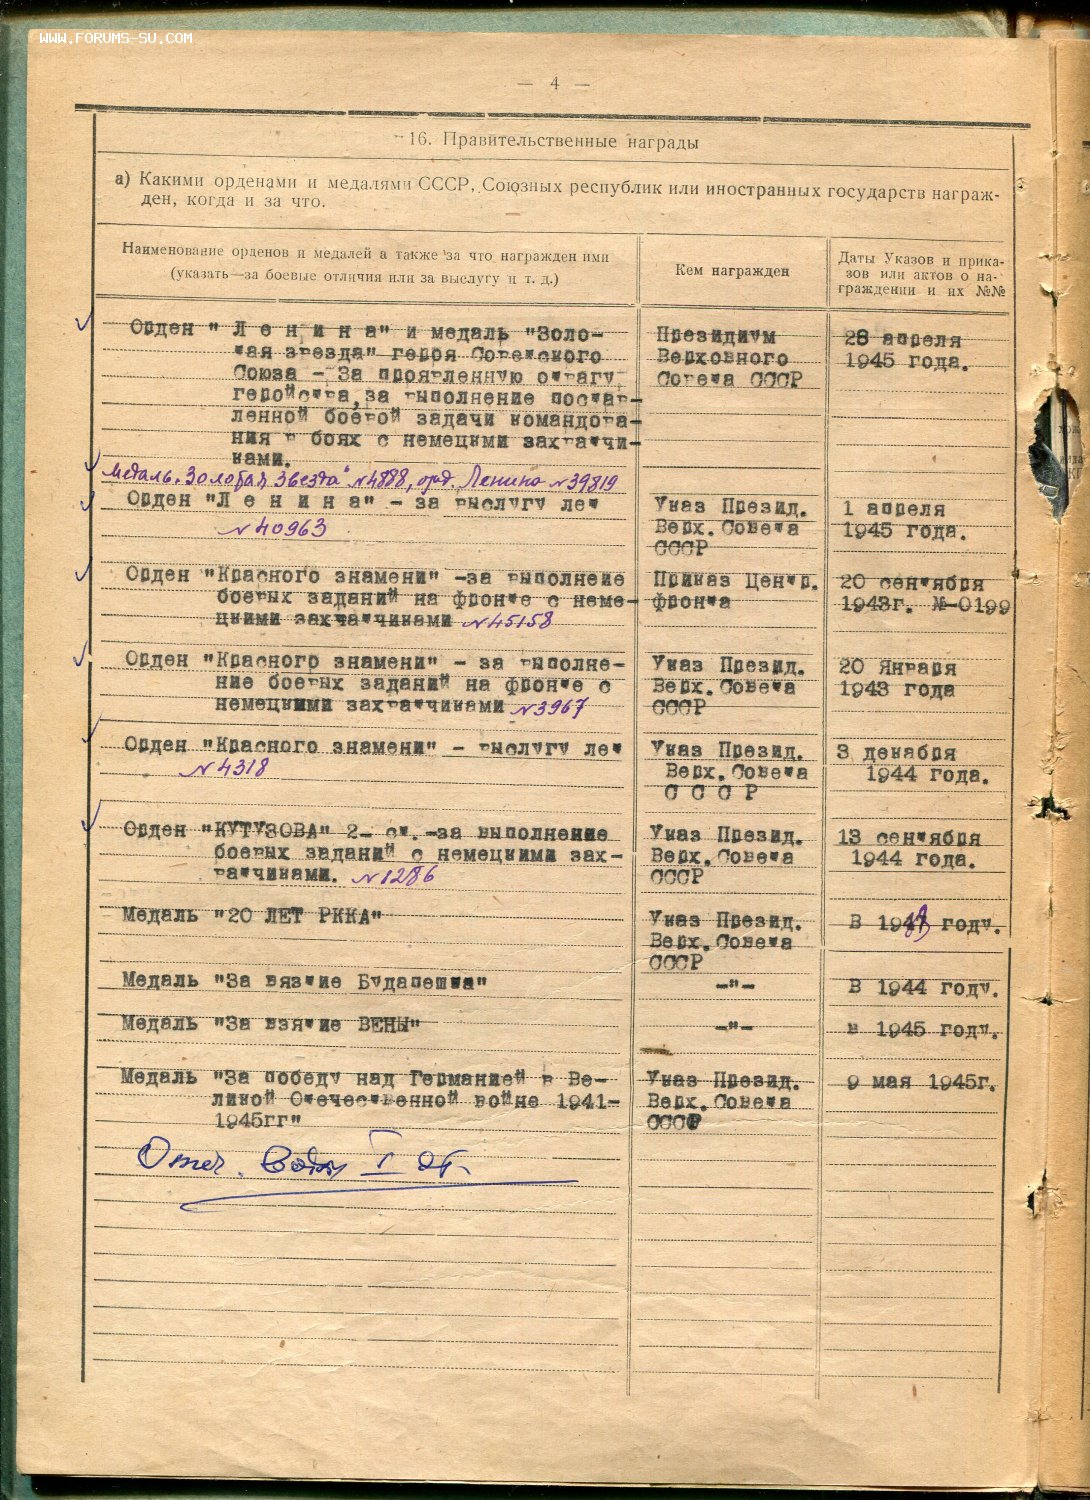 WWW.FORUMS-SU.COM
— 4 —
16. Правительственные награды
а) Какими орденами и медалями СССР, Союзных республик или иностранных государств награж-
ден, когда и за что.
Наименование орденов и медалей а также за что награжден ими
(указать—за боевые отличия или за выслугу и т. д.)
Кем награжден
Даты Указов и прика-
зов или актов о на-
граждении и их №№
Орден " Л е н и н а" и медаль "Золо-
тая звезда" героя Советского
Союза - За проявленную отвагу,
геройства, за выполнение постав-
ленной боевой задачи командова-
ния в боях с немецкими захватчи-
ками.
Президиум
Верховного
Совета СССР
28 апреля
1945 года.
Медаль „Золотая Звезда" №4888, орд. Ленина №39819
Орден "Л е н и н а" - за выслугу лет
№40963
Указ Презид.
Верх. Совета
СССР
1 апреля
1945 года.
Орден "Красного знамени" -за выполнеие
боевых заданий на фронте с неме-
цкими захватчиками №45158
Приказ Центр.
фронта
20 сентября
1943г. №-0199
Орден "Красного знамени" - за выполне-
ние боевых заданий на фронте с
немецкими захватчиками №3967
Указ Презид.
Верх. Совета
СССР
20 Января
1943 года
Орден "Красного знамени" - выслугу лет
№4318
Указ Презид.
Верх. Совета
С С С Р
3 декабря
1944 года.
Орден "КУТУЗОВА" 2- ст. -за выполнение
боевых заданий с немецкими зах-
ватчиками. №1286
Указ Презид.
Верх. Совета
СССР
13 сентября
1944 года.
Медаль "20 ЛЕТ РККА"
Указ Презид.
Верх. Совета
СССР
В году.
Медаль "За взятие Будапешта"
-"-
В 1944 году.
Медаль "За взятие ВЕНЫ"
-"-
в 1945 году.
Медаль "За победу над Германией в Ве-
ликой Отечественной войне 1941-
1945гг"
Указ Презид.
Верх. Совета
СССР
9 мая 1945г.
Отеч. Войн I ст.